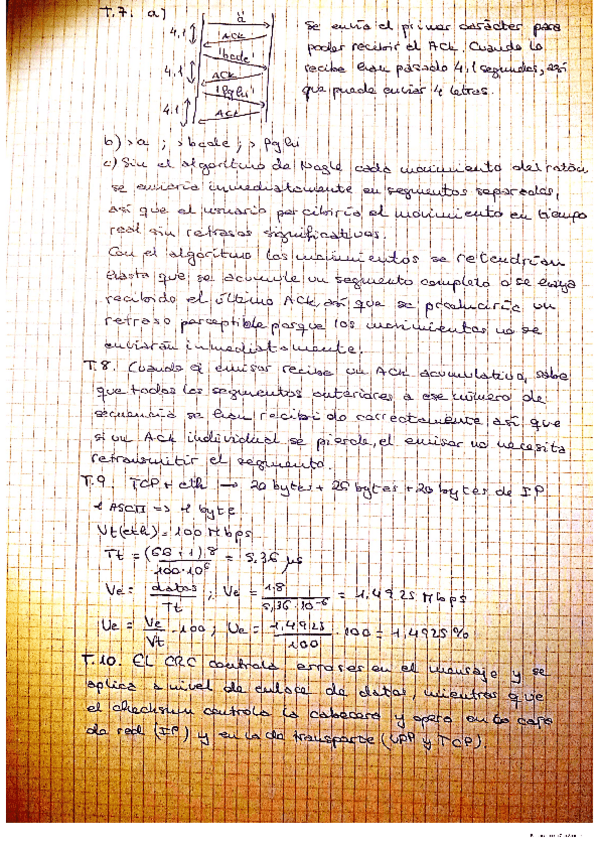 T.7. a)
'a'
4,1
ACK
'bcde'
4,1
ACK
4,1
ACK
Se envía el primer carácter para
poder recibir el ACK. Cuando lo
recibe han pasado 4,1 segundos, así
que puede enviar 4 letras.
b) > a ; > bcde ; > fghi
c) Sin el algoritmo de Nagle cada movimiento del ratón
se enviaría inmediatamente en segmentos separados,
así que el usuario percibiría el movimiento en tiempo
real sin retrasos significativos.
Con el algoritmo los movimientos se retendrían
hasta que se acumule un segmento completo o se haya
recibido el último ACK así que se produciría un
retraso perceptible porque los movimientos no se
enviarán inmediatamente.
T.8. Cuando el emisor recibe un ACK acumulativo, sabe
que todos los segmentos anteriores a ese número de
secuencia se han recibido correctamente así que
si un ACK individual se pierde, el emisor no necesita
retransmitir el segmento.
T.9. TCP + eth → 20 bytes + 26 bytes + 20 bytes de IP
1 ASCII => 1 byte
Vt(eth) = 100 Mbps
Tt = (66+1).8 / 100·10⁶ = 5,36 µs
Ve = datos / Tt ; Ve = 1.8 / 5,36·10⁻⁶ = 1,4925 Mbps
Ue = Ve / Vt . 100 ; Ue = 1,4925 / 100 . 100 = 1,4925 %
T.10. EL CRC controla errores en el mensaje y se
aplica a nivel de enlace de datos, mientras que
el checksum controla la cabecera y opera en la capa
de red (IP) y en la de transporte (UDP y TCP).